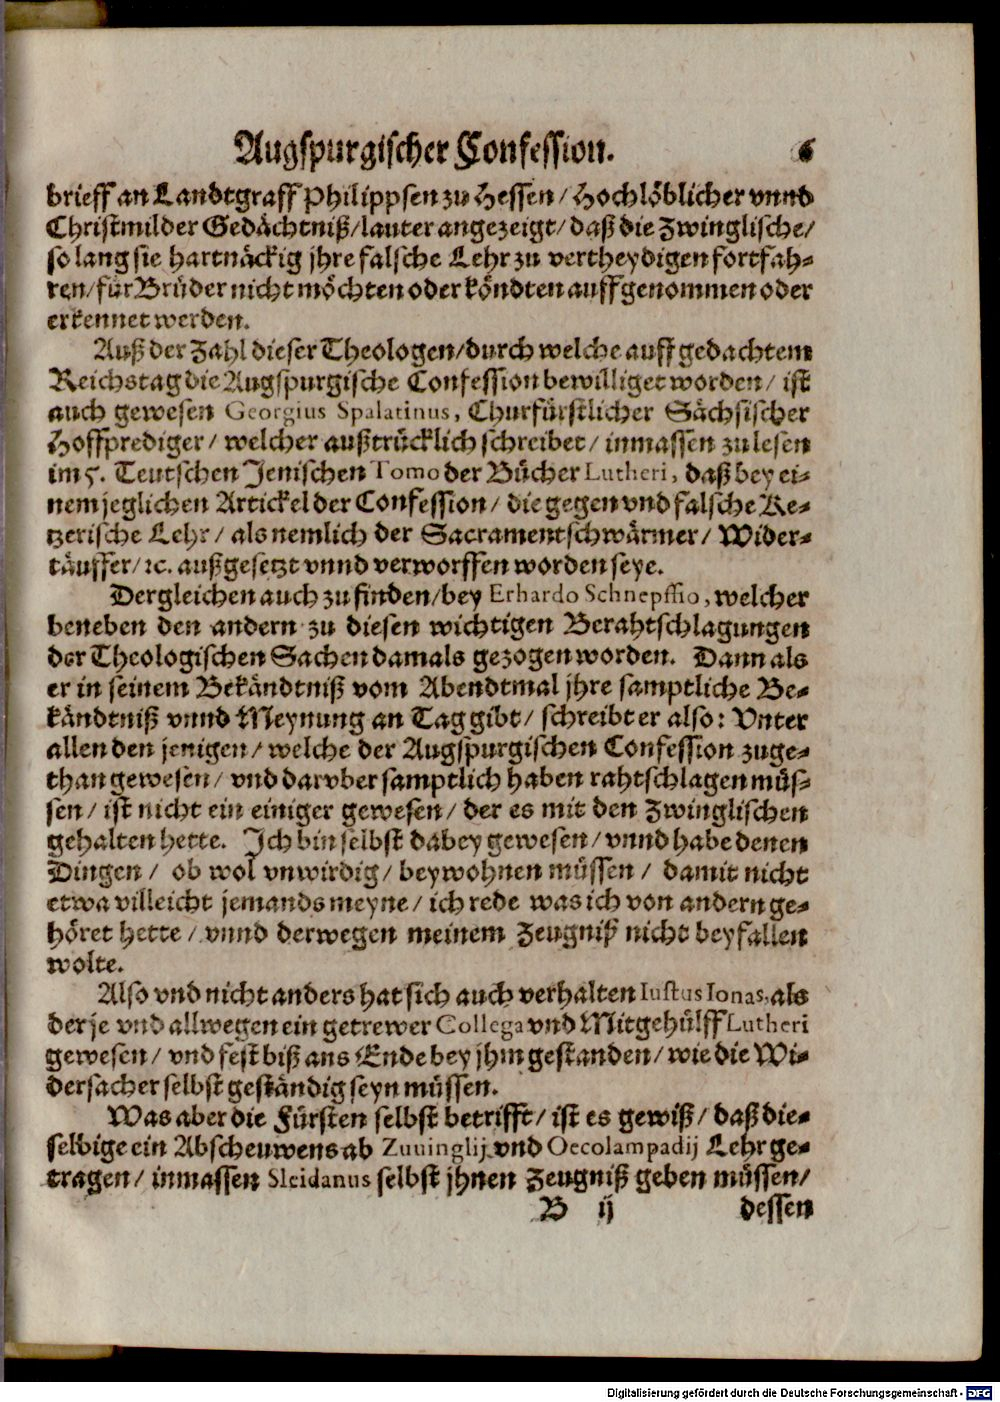 Augspurgischer Confession. 6
brieff an Landtgraff Philippsen zu Hessen / Hochlöblicher vnnd
Christmilder Gedächtniß / lauter angezeigt / daß die Zwinglische /
so lang sie hartnäckig jhre falsche Lehr zu vertheydigen fortfah-
ren / für Brüder nicht möchten oder köndten auffgenommen oder
erkennet werden.
Auß der Zahl dieser Theologen / durch welche auff gedachtem
Reichstag die Augspurgische Confession bewilliget worden / ist
auch gewesen Georgius Spalatinus, Churfürstlicher Sächsischer
Hoffprediger / welcher außtrücklich schreibet / inmassen zu lesen
im 5. Teutschen Jenischen Tomo der Bücher Lutheri, daß bey ei-
nem jeglichen Artickel der Confession / die gegen vnd falsche Ke-
tzerische Lehr / als nemlich der Sacramentschwärmer / Wider-
täuffer / ꝛc. außgesetzt vnnd verworffen worden seye.
Dergleichen auch zu finden / bey Erhardo Schnepffio, welcher
beneben den andern zu diesen wichtigen Berahtschlagungen
der Theologischen Sachen damals gezogen worden. Dann als
er in seinem Bekändtniß vom Abendtmal jhre samptliche Be-
kändtniß vnnd Meynung an Tag gibt / schreibt er also: Vnter
allen den jenigen / welche der Augspurgischen Confession zuge-
than gewesen / vnd darvber samptlich haben rahtschlagen müs-
sen / ist nicht ein einiger gewesen / der es mit den Zwinglischen
gehalten hette. Ich bin selbst dabey gewesen / vnnd habe denen
Dingen / ob wol vnwirdig / beywohnen müssen / damit nicht
etwa villeicht jemands meyne / ich rede was ich von andern ge-
höret hette / vnnd derwegen meinem Zeugniß nicht beyfallen
wolte.
Also vnd nicht anders hat sich auch verhalten Iustus Ionas, als
der je vnd allwegen ein getrewer Collega vnd Mitgehülff Lutheri
gewesen / vnd fest biß ans Ende bey jhm gestanden / wie die Wi-
dersacher selbst geständig seyn müssen.
Was aber die Fürsten selbst betrifft / ist es gewiß / daß die-
selbige ein Abscheuwens ab Zuuinglij vnd Oecolampadij Lehr ge-
tragen / inmassen Sleidanus selbst jhnen Zeugniß geben müssen /
B ij dessen
Digitalisierung gefördert durch die Deutsche Forschungsgemeinschaft - DFG